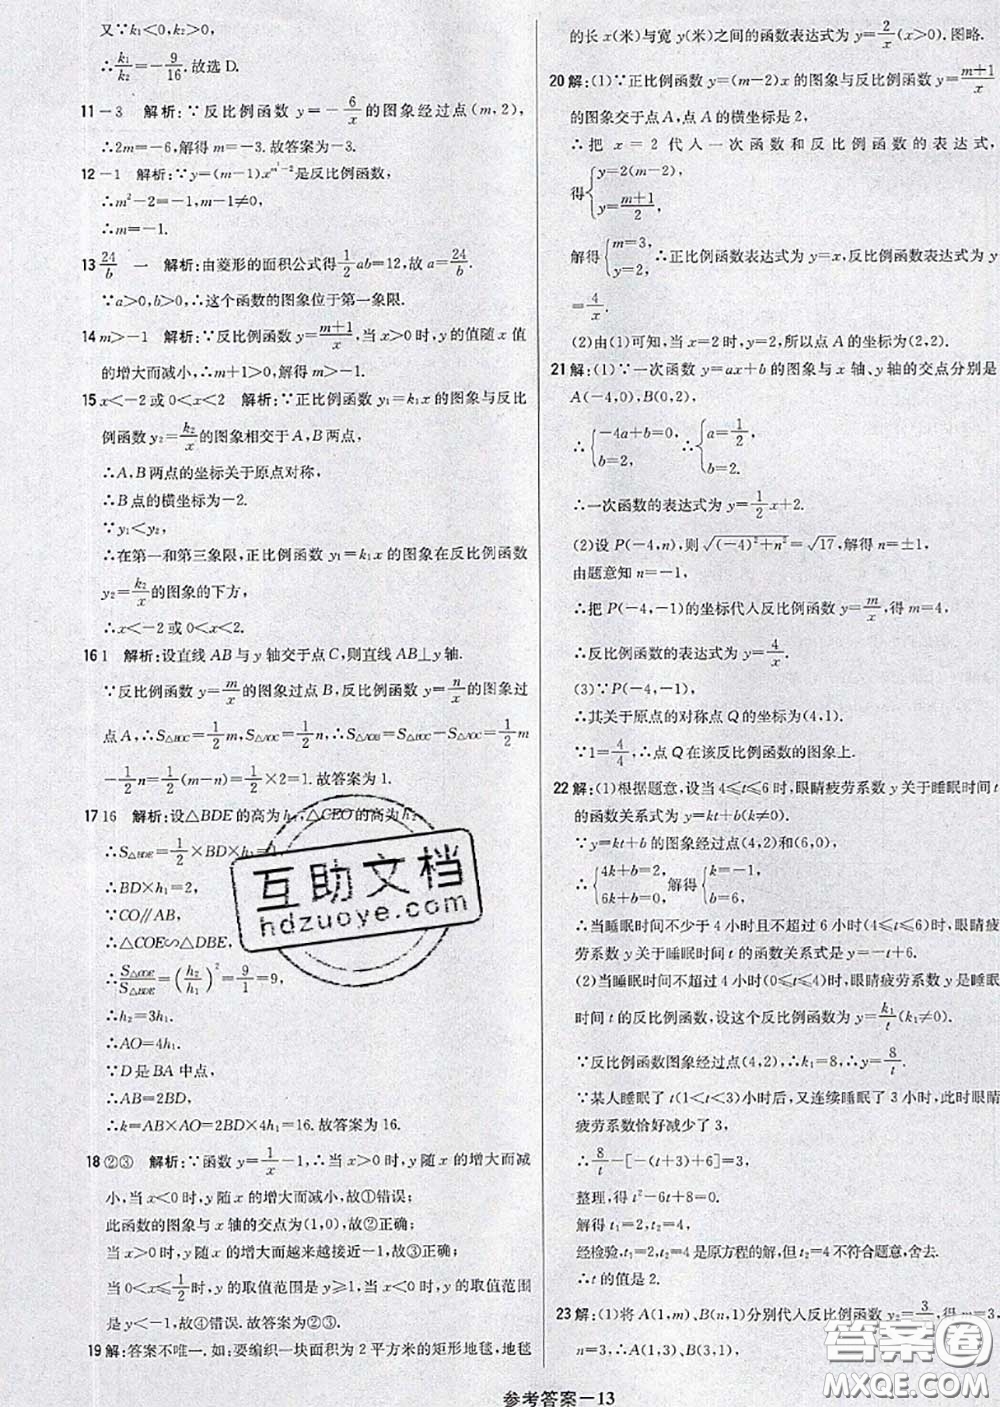 又∵k₁<0,k₂>0,
∴k₁/k₂=-9/16.故选D.
11 -3 解析:∵反比例函数 y=-6/x 的图象经过点(m,2),
∴2m=-6,解得 m=-3.故答案为-3.
12 -1 解析:∵y=(m-1)x^(m²-2)是反比例函数,
∴m²-2=-1,m-1≠0,
∴m=-1.
13 24/b 一 解析:由菱形的面积公式得1/2ab=12,故a=24/b.
∵a>0,b>0,∴这个函数的图象位于第一象限.
14 m>-1 解析:∵反比例函数 y=(m+1)/x,当 x>0时,y的值随x值
的增大而减小,∴m+1>0,解得 m>-1.
15 x<-2或0<x<2 解析:∵正比例函数 y₁=k₁x 的图象与反比
例函数y₂=k₂/x的图象相交于A,B两点,
∴A,B两点的坐标关于原点对称,
∴B点的横坐标为-2.
∵y₁<y₂,
∴在第一和第三象限,正比例函数 y₁=k₁x 的图象在反比例函数
y₂=k₂/x的图象的下方,
∴x<-2或0<x<2.
16 1 解析:设直线AB与y轴交于点C,则直线AB⊥y轴.
∵反比例函数 y=m/x 的图象过点 B,反比例函数 y=n/x 的图象过
点A,∴S△BOC=1/2m,S△AOC=1/2n,∴S△AOB=S△BOC-S△AOC=1/2m
-1/2n=1/2(m-n)=1/2×2=1.故答案为1.
17 16 解析:设△BDE的高为h₁,△CEO的高为h₂
∴S△BDE=1/2×BD×h₁=1,
∴BD×h₁=2,
∵CO∥AB,
∴△COE∽△DBE,
∴S△COE/S△BDE=(h₂/h₁)²=9/1=9,
∴h₂=3h₁.
∴AO=4h₁.
∵D是BA中点,
∴AB=2BD,
∴k=AB×AO=2BD×4h₁=16.故答案为16.
18 ②③ 解析:∵函数 y=1/x-1,∴当x>0时,y随x的增大而减
小,当x<0时,y随x的增大而减小,故①错误;
此函数的图象与x轴的交点为(1,0),故②正确;
当x>0时,y随x的增大而越来越接近-1,故③正确;
当0<x≤1/2时,y的取值范围是y≥1,当x<0时,y的取值范围
是y<-1,故④错误.故答案为②③.
19 解:答案不唯一.如:要编织一块面积为2平方米的矩形地毯,地毯
的长x(米)与宽y(米)之间的函数表达式为 y=2/x(x>0).图略.
20 解:(1)∵正比例函数 y=(m-2)x的图象与反比例函数 y=(m+1)/x
的图象交于点A,点A的横坐标是2,
∴把 x=2 代入一次函数和反比例函数的表达式,
得{y=2(m-2), y=(m+1)/2,
解得{m=3, y=2, ∴正比例函数表达式为y=x,反比例函数表达式为y
=4/x.
(2)由(1)可知,当x=2时,y=2,所以点A的坐标为(2,2).
21 解:(1)∵一次函数 y=ax+b的图象与 x轴、y轴的交点分别是
A(-4,0),B(0,2),
∴{-4a+b=0, b=2, ∴{a=1/2, b=2.
∴一次函数的表达式为 y=1/2x+2.
(2)设 P(-4,n),则√((-4)²+n²)=√17,解得 n=±1,
由题意知n=-1,
∴把P(-4,-1)的坐标代入反比例函数 y=m/x,得 m=4,
∴反比例函数的表达式为 y=4/x.
(3)∵P(-4,-1),
∴其关于原点的对称点Q的坐标为(4,1).
∵1=4/4,∴点Q在该反比例函数的图象上.
22 解:(1)根据题意,设当4≤t≤6时,眼睛疲劳系数y关于睡眠时间t
的函数关系式为y=kt+b(k≠0).
∵y=kt+b的图象经过点(4,2)和(6,0),
∴{4k+b=2, 6k+b=0, 解得{k=-1, b=6,
∴当睡眠时间不少于4小时且不超过6小时(4≤t≤6)时,眼睛疲
劳系数y关于睡眠时间t的函数关系式是y=-t+6.
(2)当睡眠时间不超过4小时(0≤t≤4)时,眼睛疲劳系数y是睡眠
时间t的反比例函数,设这个反比例函数为 y=k₁/t(k₁≠0).
∵反比例函数图象经过点(4,2),∴k₁=8,∴y=8/t.
∵某人睡眠了t(1<t<3)小时后,又连续睡眠了3小时,此时眼睛
疲劳系数恰好减少了3,
∴8/t-[-(t+3)+6]=3,
整理,得t²-6t+8=0.
解得t₁=2,t₂=4.
经检验,t₁=2,t₂=4是原方程的解,但t₂=4不符合题意,舍去.
∴t的值是2.
23 解:(1)将A(1,m),B(n,1)分别代入反比例函数 y₂=3/x,得m=3,
n=3,
∴A(1,3),B(3,1).
参考答案—13
互助文档
hdzuoye.com
答案圈
MXQE.COM